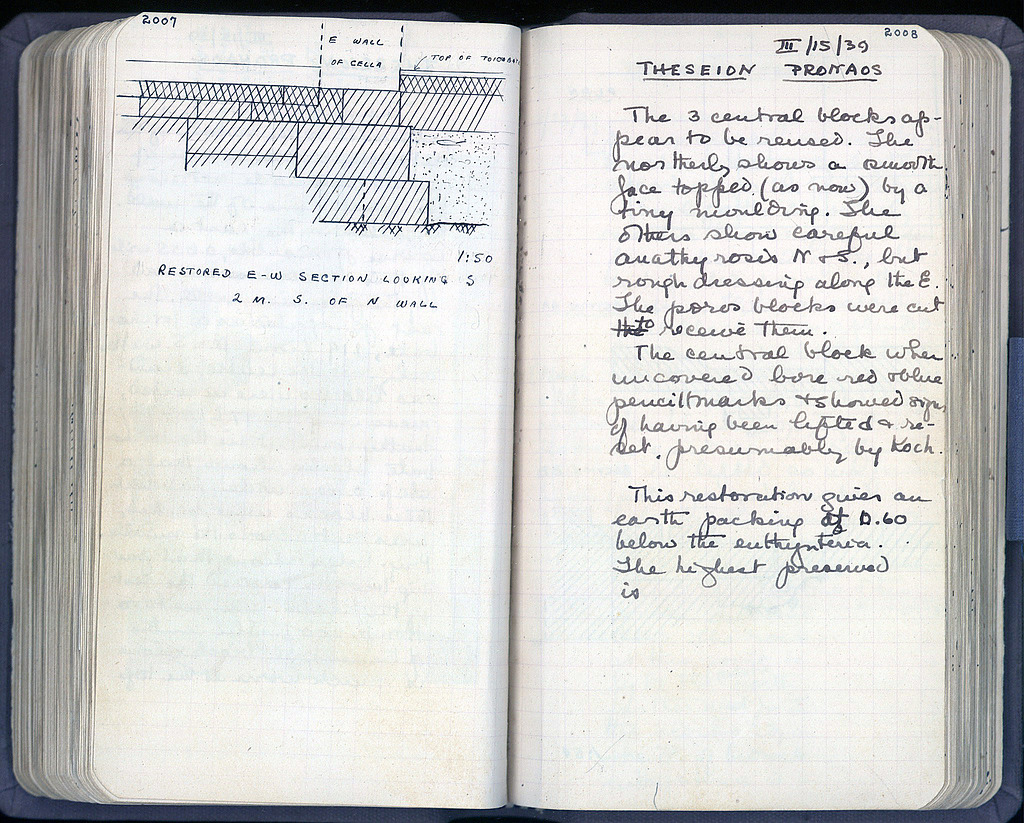 2007
E WALL
OF CELLA
TOP OF
1:50
RESTORED E-W SECTION LOOKING S
2 M. S. OF N WALL
2008
III/15/39
THESEION PRONAOS
The 3 central blocks ap-
pear to be reused. The
northerly shows a smooth
face topped (as now) by a
tiny moulding. The
others show careful
anathyrosis N & S., but
rough dressing along the E.
The poros blocks were cut
to receive them.
The central block when
uncovered bore red & blue
pencil marks & showed signs
of having been lifted & re-
set, presumably by Koch.
This restoration gives an
earth packing of 0.60
below the euthynteria.
The highest preserved
is